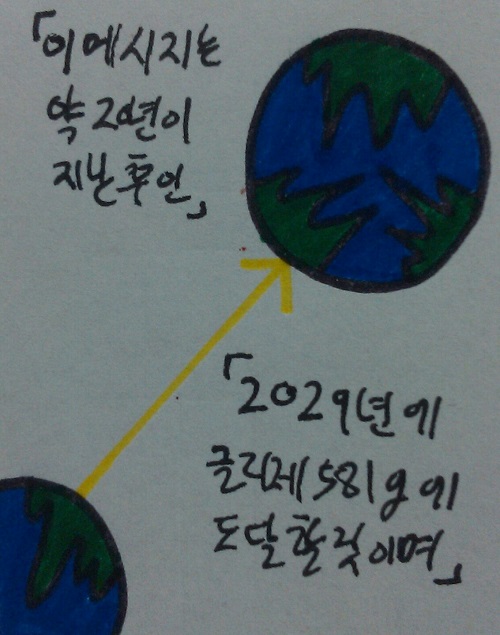 「이 메시지는
약 20년이
지난 후인」
「2029년에
글리제 581g에
도달할 것이며」